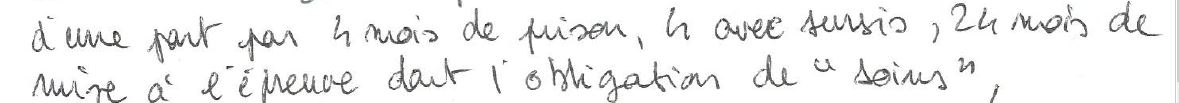 d'une part par 4 mois de prison, 4 avec sursis, 24 mois de
mise à l'épreuve dont l'obligation de "soins",